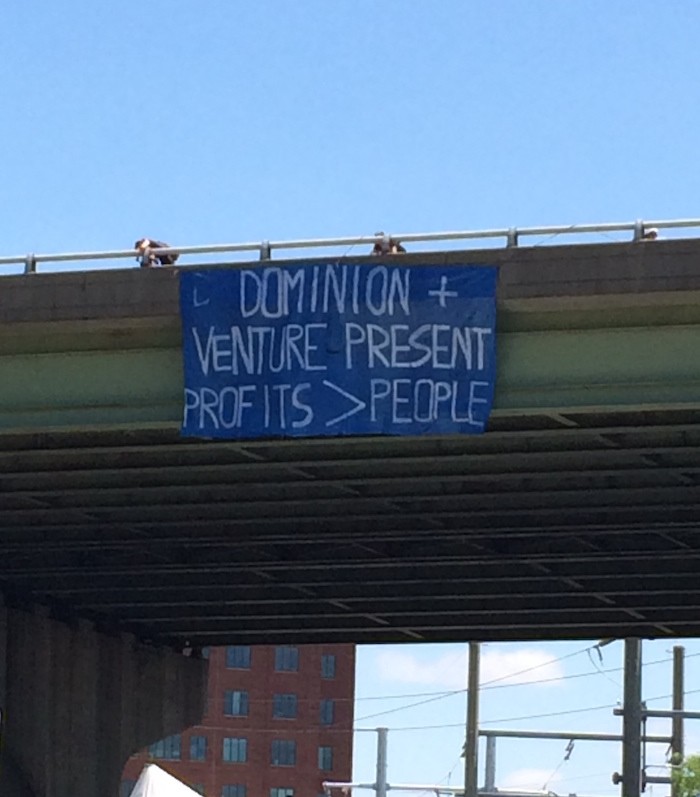 DOMINION +
VENTURE PRESENT
PROFITS > PEOPLE